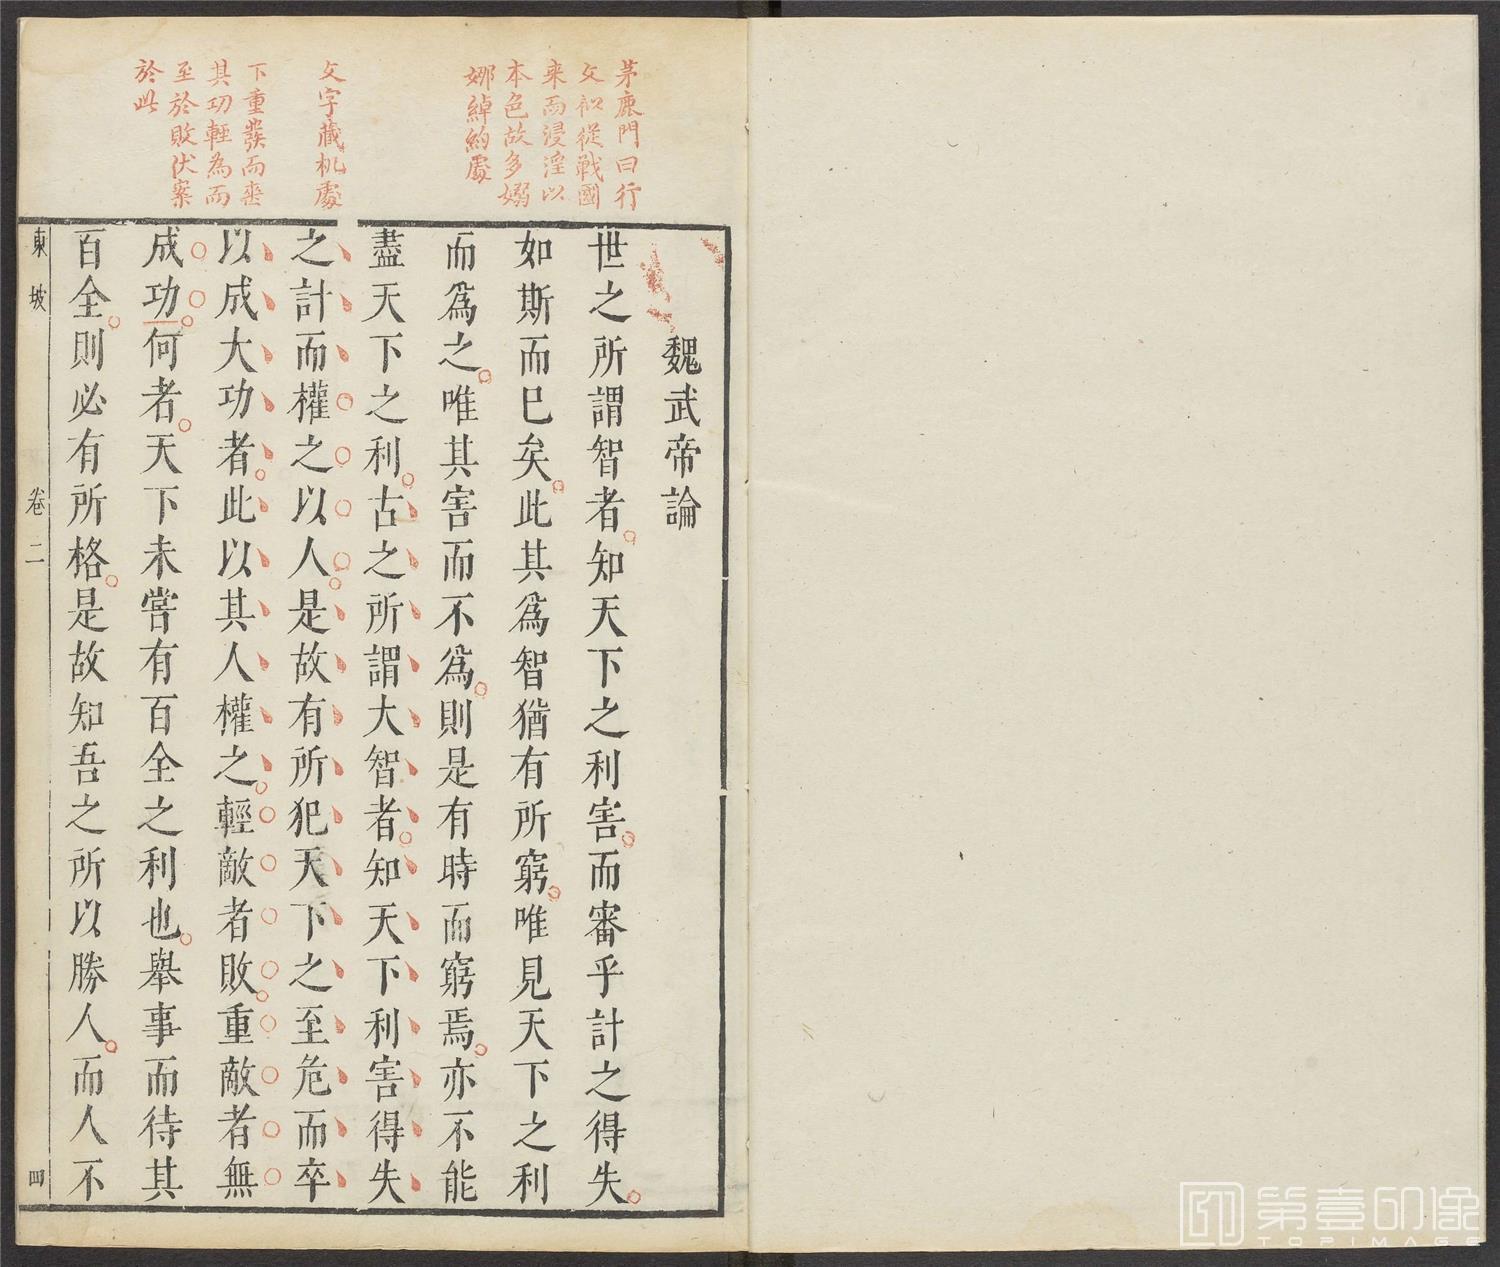 茅鹿門曰行
文似從戰國
来而浸淫以
本色故多嫋
娜綽約處
文字藏机處
下重發而垂
其功輕為而
至於敗伏案
於此
魏武帝論
世之所謂智者知天下之利害而審乎計之得失
如斯而已矣此其爲智猶有所窮唯見天下之利
而爲之唯其害而不爲則是有時而窮焉亦不能
盡天下之利古之所謂大智者知天下利害得失
之計而權之以人是故有所犯天下之至危而卒
以成大功者此以其人權之輕敵者敗重敵者無
成功何者天下未嘗有百全之利也舉事而待其
百全則必有所格是故知吾之所以勝人而人不
東坡 卷二 四
第壹印像
TOPIMAGE